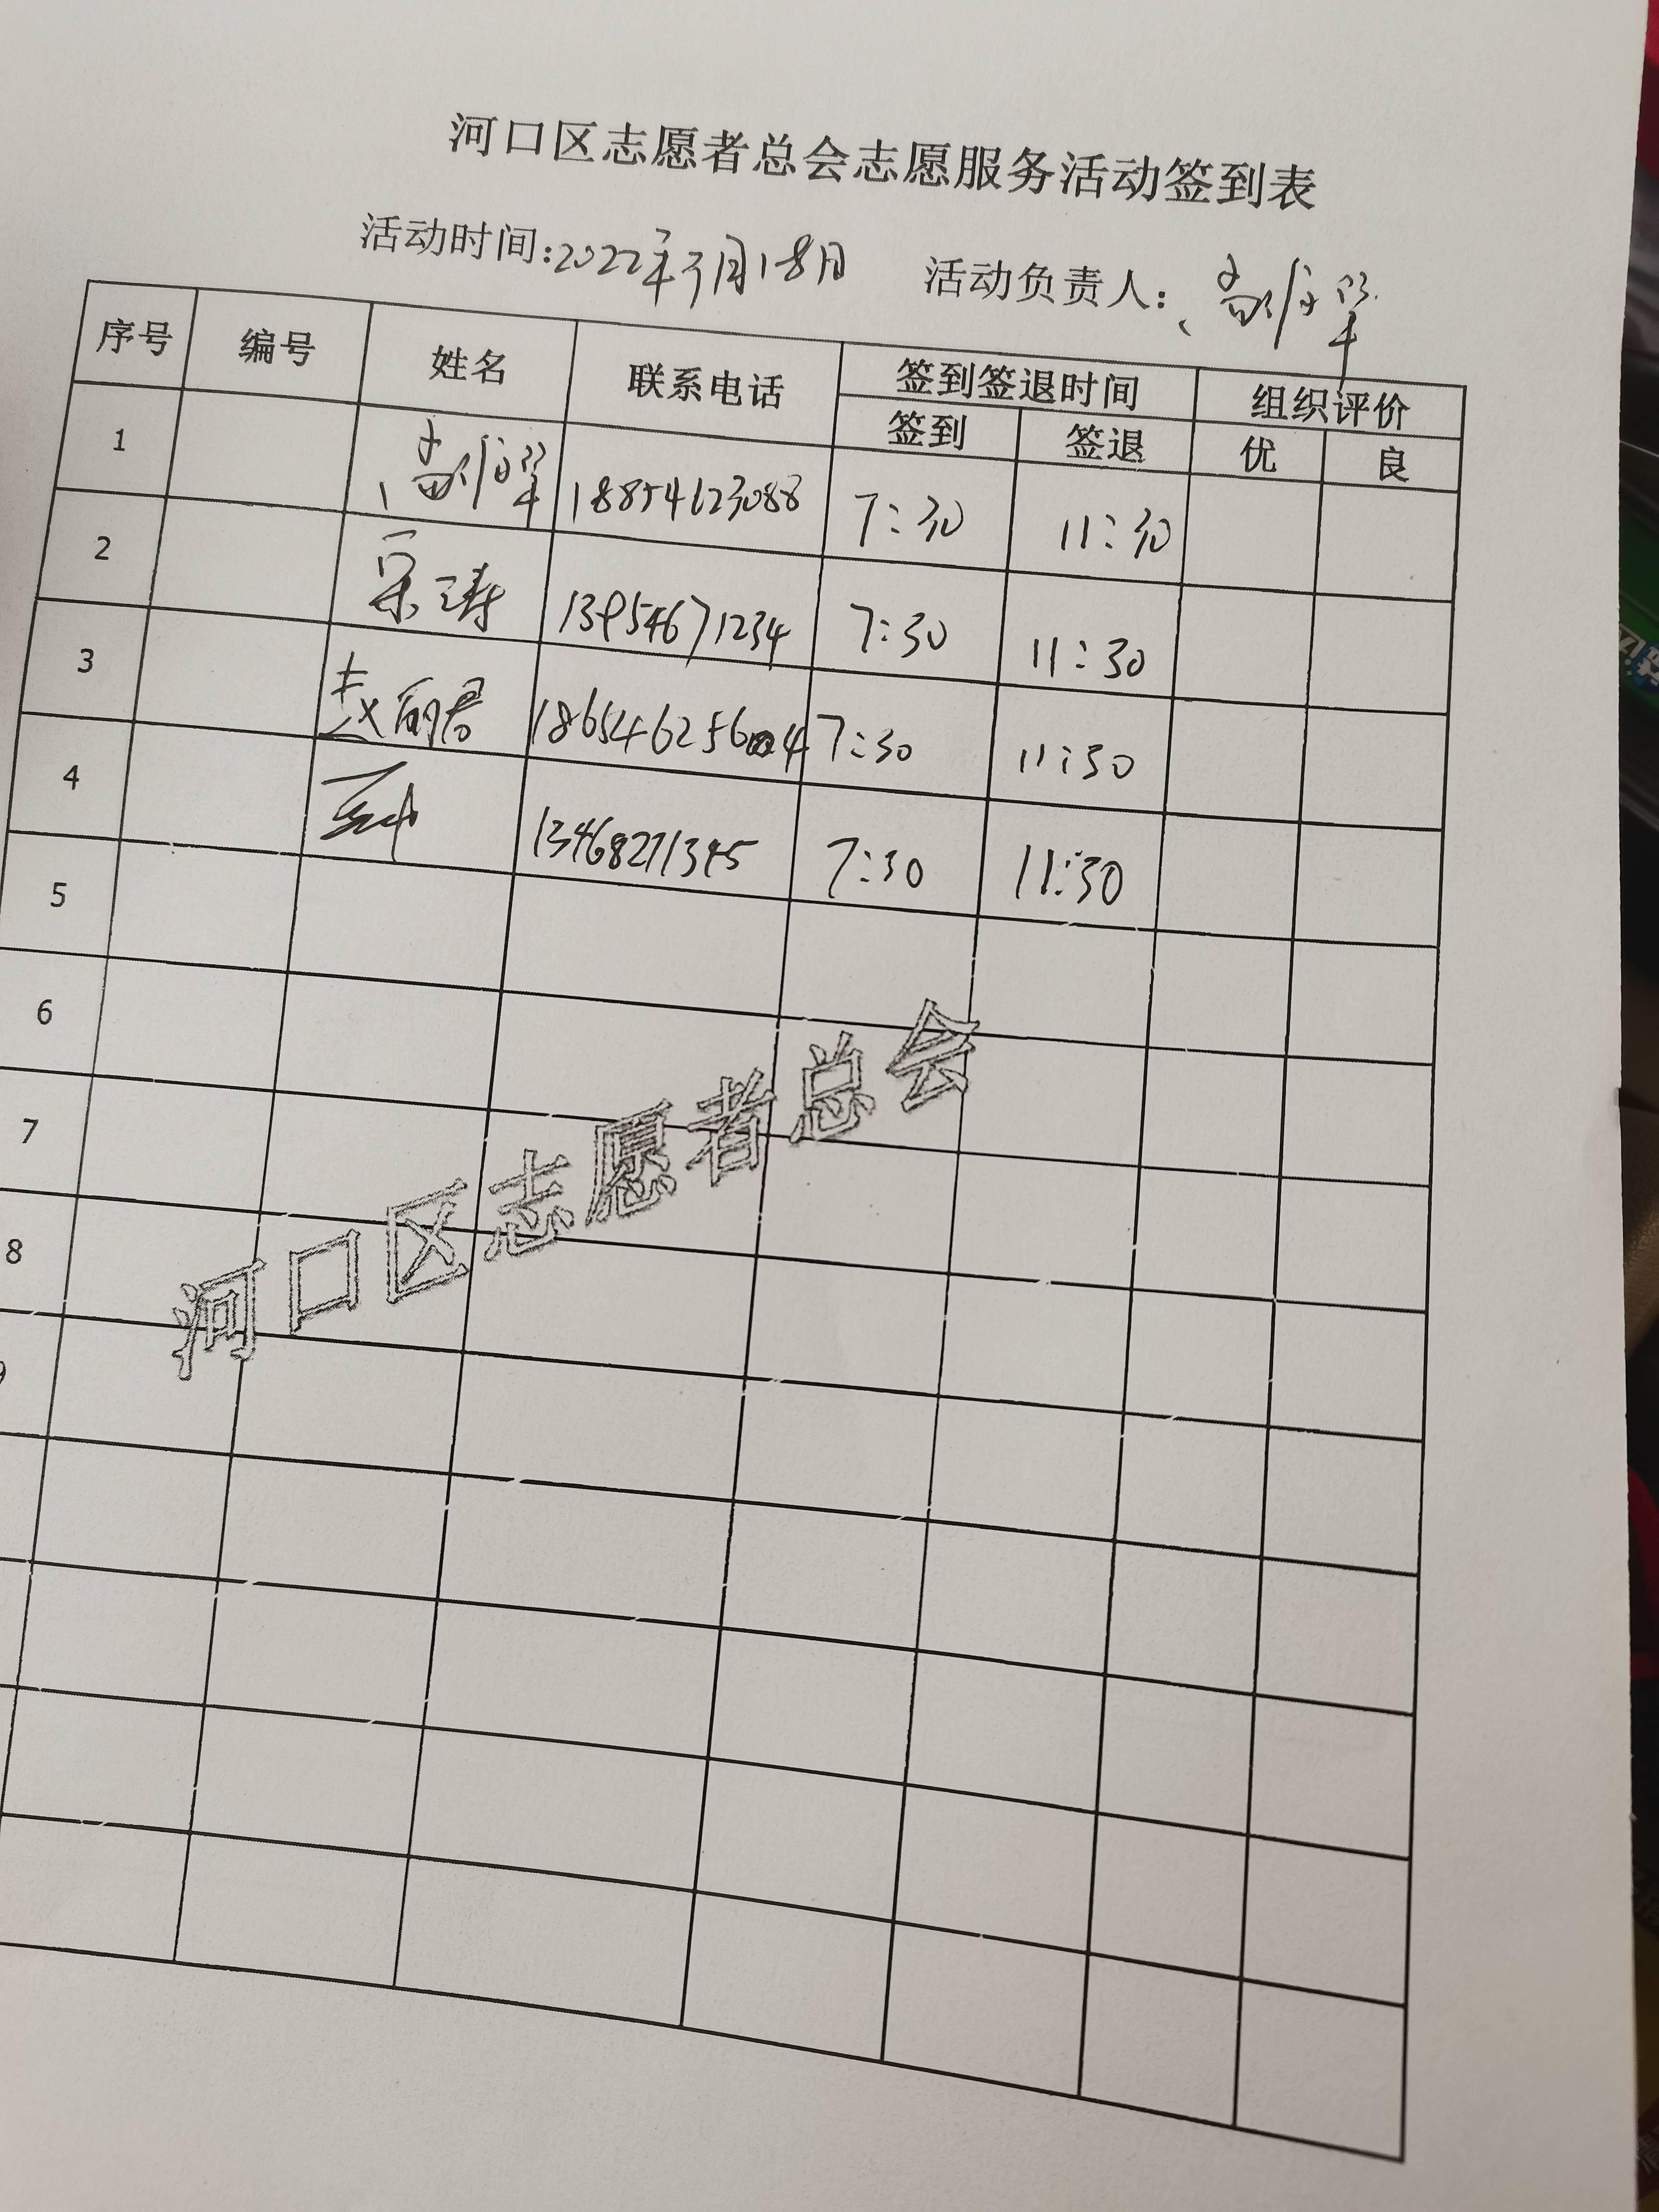 河口区志愿者总会志愿服务活动签到表
活动时间:2022年3月18日 活动负责人:
序号 编号 姓名 联系电话 签到签退时间 组织评价
签到 签退 优 良
1 18854623088 7:30 11:30
2 宋涛 13954671234 7:30 11:30
3 赵丽君 7:30 11:30
4 13468271345 7:30 11:30
5
6
7
8
9
河口区志愿者总会